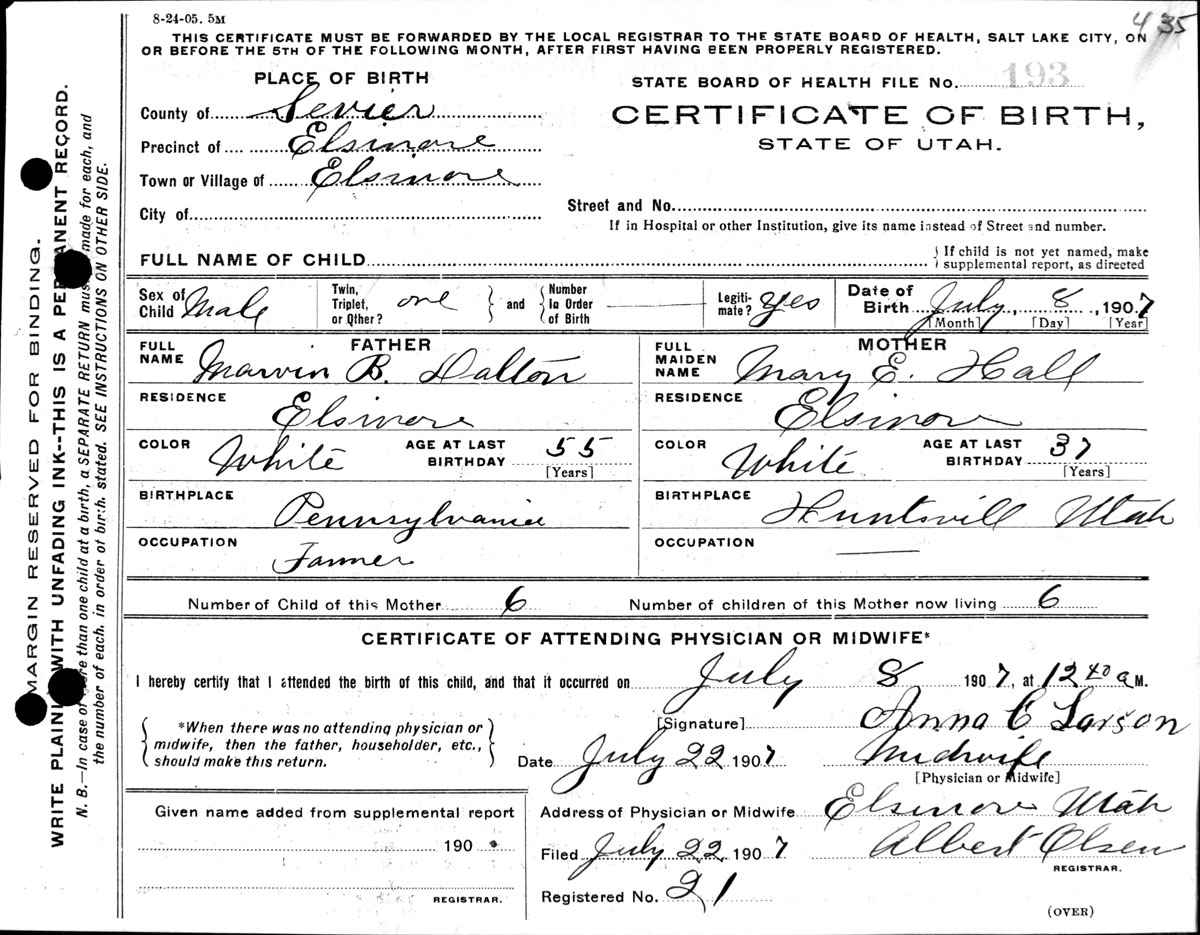 8-24-05. 5M
435
THIS CERTIFICATE MUST BE FORWARDED BY THE LOCAL REGISTRAR TO THE STATE BOARD OF HEALTH, SALT LAKE CITY, ON
OR BEFORE THE 5TH OF THE FOLLOWING MONTH, AFTER FIRST HAVING BEEN PROPERLY REGISTERED.
PLACE OF BIRTH
STATE BOARD OF HEALTH FILE No. 193
County of Sevier
CERTIFICATE OF BIRTH,
STATE OF UTAH.
Precinct of Elsinore
Town or Village of Elsinore
City of
Street and No.
If in Hospital or other Institution, give its name instead of Street and number.
FULL NAME OF CHILD
} If child is not yet named, make
supplemental report, as directed
Sex of
Child Male
Twin,
Triplet,
or Other? one
} and {
Number
in Order
of Birth
Legiti-
mate? yes
Date of
Birth July, 8, 1907
[Month] [Day] [Year]
FATHER
FULL
NAME Marvin B. Dalton
RESIDENCE
Elsinore
COLOR White AGE AT LAST
BIRTHDAY 55
[Years]
BIRTHPLACE
Pennsylvania
OCCUPATION
Farmer
MOTHER
FULL
MAIDEN
NAME Mary E. Hall
RESIDENCE
Elsinore
COLOR White AGE AT LAST
BIRTHDAY 37
[Years]
BIRTHPLACE
Huntsvill Utah
OCCUPATION
Number of Child of this Mother 6 Number of children of this Mother now living 6
CERTIFICATE OF ATTENDING PHYSICIAN OR MIDWIFE*
I hereby certify that I attended the birth of this child, and that it occurred on July 8 1907, at 12 40 a M.
{ *When there was no attending physician or
midwife, then the father, householder, etc.,
should make this return. }
[Signature] Anna C Larson
Date July 22 1907 Midwife
[Physician or Midwife]
Given name added from supplemental report
190
REGISTRAR.
Address of Physician or Midwife Elsinore Utah
Filed July 22, 1907 Albert Olsen
REGISTRAR.
Registered No. 21
(OVER)
MARGIN RESERVED FOR BINDING.
WRITE PLAINLY WITH UNFADING INK--THIS IS A PERMANENT RECORD.
N. B.—In case of more than one child at a birth, a SEPARATE RETURN must be made for each, and
the number of each, in order of birth, stated. SEE INSTRUCTIONS ON OTHER SIDE.